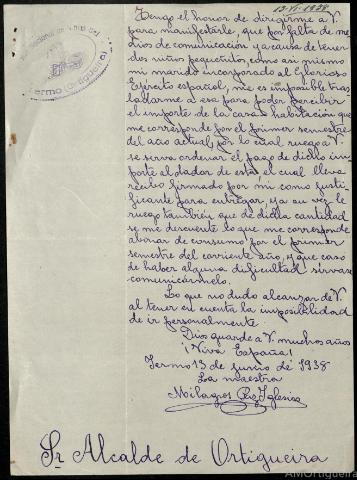 13-VI-1938
Tengo el honor de dirigirme a V.
para manifestarle, que por falta de me
dios de comunicación y a causa de tener
dos niños pequeñitos, como así mismo
mi marido incorporado al Glorioso
Ejército español, me es imposible tras
ladarme a esa para poder percibir
el importe de la casa habitación que
me corresponde por el primer semestre
del año actual, por lo cual ruego a V.
se serva ordenar el pago de dicho im
porte al dador de esta el cual lleva
recibo firmado por mí como justi
ficante para entregar, y a su vez le
ruego también, que de dicha cantidad
se me descuente lo que me corresponde
abonar de consumo por el primer
semestre del corriente año, y que caso
de haber alguna dificultad sirvase
comunicármelo.
Lo que no dudo alcanzar de V.
al tener en cuenta la imposibilidad
de ir personalmente.
Dios guarde a V. muchos años
¡Viva España!
Yermo 13 de junio de 1938
La maestra
Milagros Iglesias
Sr Alcalde de Ortigueira
Yermo (Ortigueira)
AMOrtigueira